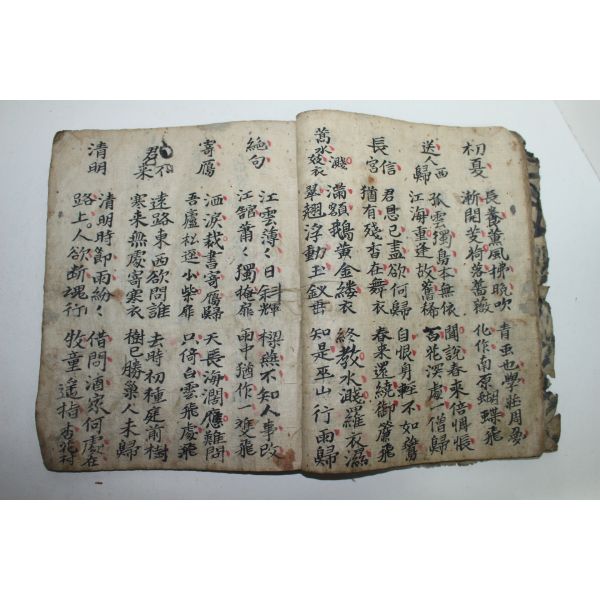 初夏
長養薰風拂晚吹 青虫也學莊周夢
漸開芰荷落薔薇 化作南原蝴蝶飛
送人西歸
孤雲獨鳥本無依 聞說春來倍惆悵
江海重逢故舊稀 百花深處一僧歸
長信宮
君恩已盡欲何歸 自恨身輕不如鷰
猶有殘香在舞衣 春來還繞御簾飛
水濺妓衣
滿額鵝黃金縷衣 終教水濺羅衣濕
翠翹浮動玉釵垂 知是巫山行雨歸
絶句
江雲薄〻日斜輝 樑燕不知人事改
江舘蕭〻獨掩扉 雨中猶作一雙飛
寄鴈
洒淚裁書寄鴈歸 天長海濶應難問
吾廬松逕小柴扉 只倚白雲飛處飛
君不來
遠路東西欲問誰 去時初種庭前樹
寒來無處寄寒衣 樹已勝巢人未歸
清明
清明時節雨紛〻 借問酒家何處在
路上人欲斷魂行 牧童遙指杏花村